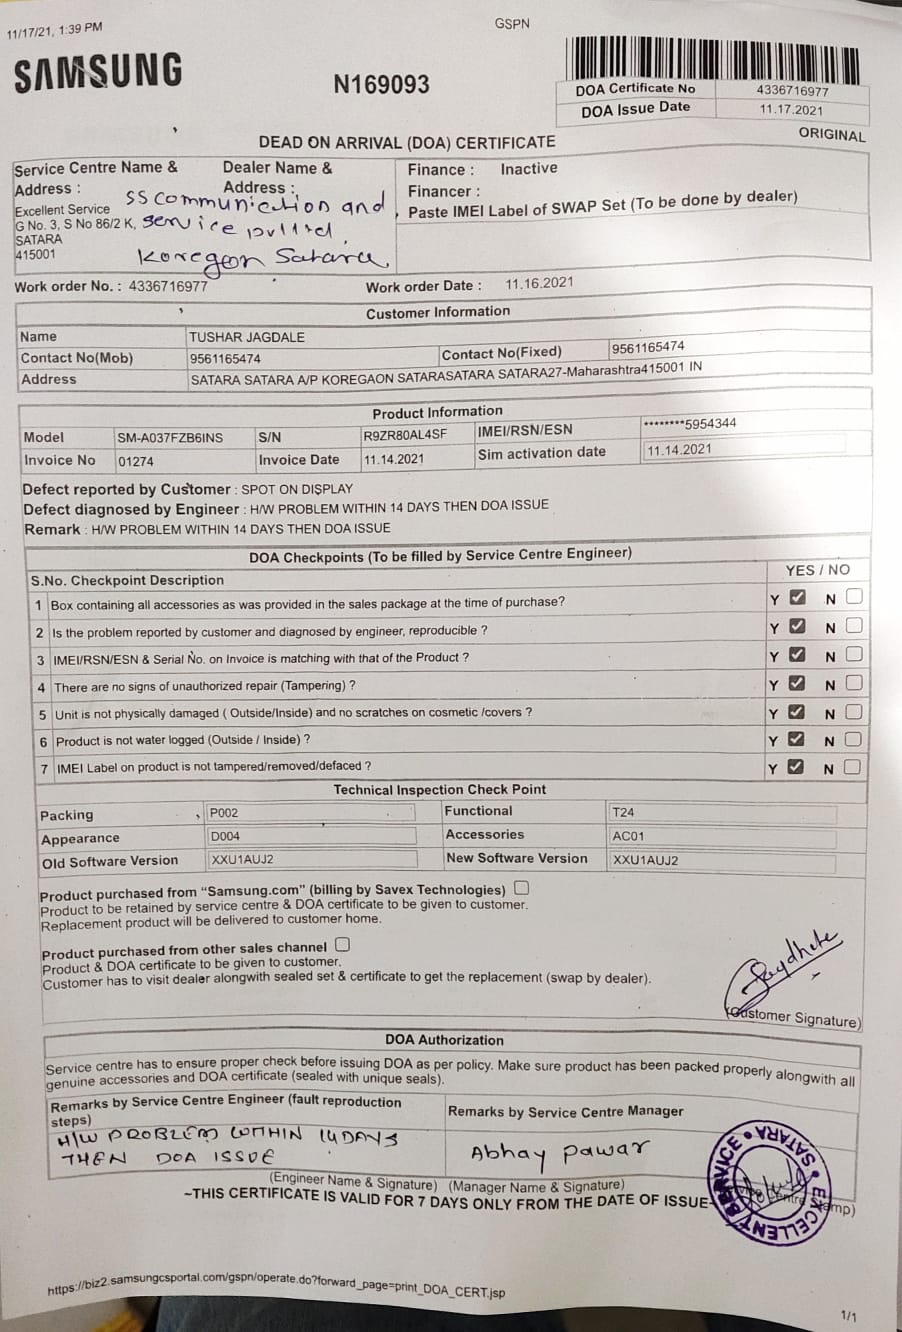 11/17/21, 1:39 PM
GSPN
SAMSUNG
N169093
DOA Certificate No 4336716977
DOA Issue Date 11.17.2021
ORIGINAL
DEAD ON ARRIVAL (DOA) CERTIFICATE
Service Centre Name & Address :
Excellent Service
G No. 3, S No 86/2 K,
SATARA
415001
Dealer Name & Address :
SS communication and
service pvt ltd
Koregaon Satara
Finance : Inactive
Financer :
Paste IMEI Label of SWAP Set (To be done by dealer)
Work order No. : 4336716977
Work order Date : 11.16.2021
Customer Information
Name TUSHAR JAGDALE
Contact No(Mob) 9561165474 Contact No(Fixed) 9561165474
Address SATARA SATARA A/P KOREGAON SATARASATARA SATARA27-Maharashtra415001 IN
Product Information
Model SM-A037FZB6INS S/N R9ZR80AL4SF IMEI/RSN/ESN ********5954344
Invoice No 01274 Invoice Date 11.14.2021 Sim activation date 11.14.2021
Defect reported by Customer : SPOT ON DISPLAY
Defect diagnosed by Engineer : H/W PROBLEM WITHIN 14 DAYS THEN DOA ISSUE
Remark : H/W PROBLEM WITHIN 14 DAYS THEN DOA ISSUE
DOA Checkpoints (To be filled by Service Centre Engineer)
S.No. Checkpoint Description YES / NO
1 Box containing all accessories as was provided in the sales package at the time of purchase? Y N
2 Is the problem reported by customer and diagnosed by engineer, reproducible ? Y N
3 IMEI/RSN/ESN & Serial No. on Invoice is matching with that of the Product ? Y N
4 There are no signs of unauthorized repair (Tampering) ? Y N
5 Unit is not physically damaged ( Outside/Inside) and no scratches on cosmetic /covers ? Y N
6 Product is not water logged (Outside / Inside) ? Y N
7 IMEI Label on product is not tampered/removed/defaced ? Y N
Technical Inspection Check Point
Packing P002 Functional T24
Appearance D004 Accessories AC01
Old Software Version XXU1AUJ2 New Software Version XXU1AUJ2
Product purchased from “Samsung.com” (billing by Savex Technologies)
Product to be retained by service centre & DOA certificate to be given to customer.
Replacement product will be delivered to customer home.
Product purchased from other sales channel
Product & DOA certificate to be given to customer.
Customer has to visit dealer alongwith sealed set & certificate to get the replacement (swap by dealer).
(Customer Signature)
DOA Authorization
Service centre has to ensure proper check before issuing DOA as per policy. Make sure product has been packed properly alongwith all
genuine accessories and DOA certificate (sealed with unique seals).
Remarks by Service Centre Engineer (fault reproduction steps)
H/W PROBLEM WITHIN 14 DAYS
THEN DOA ISSUE
Remarks by Service Centre Manager
Abhay pawar
(Engineer Name & Signature) (Manager Name & Signature)
EXCELLENT SERVICE • SATARA •
~THIS CERTIFICATE IS VALID FOR 7 DAYS ONLY FROM THE DATE OF ISSUE~
https://biz2.samsungcsportal.com/gspn/operate.do?forward_page=print_DOA_CERT.jsp
1/1